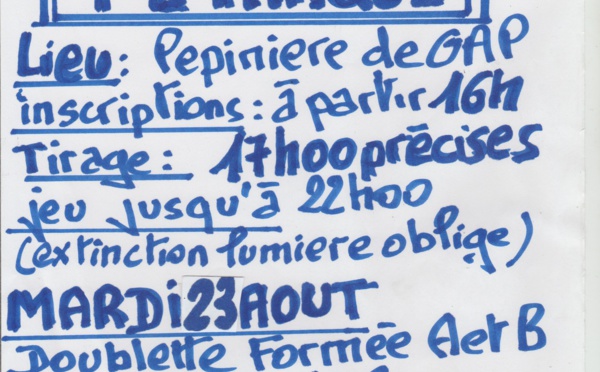 Lieu: Pepiniere de GAP
inscriptions: à partir 16h
Tirage: 17h00 précises
jeu jusqu'à 22h00
(extinction lumiere oblige)
MARDi 23 AOUT
Doublette Formée A et B